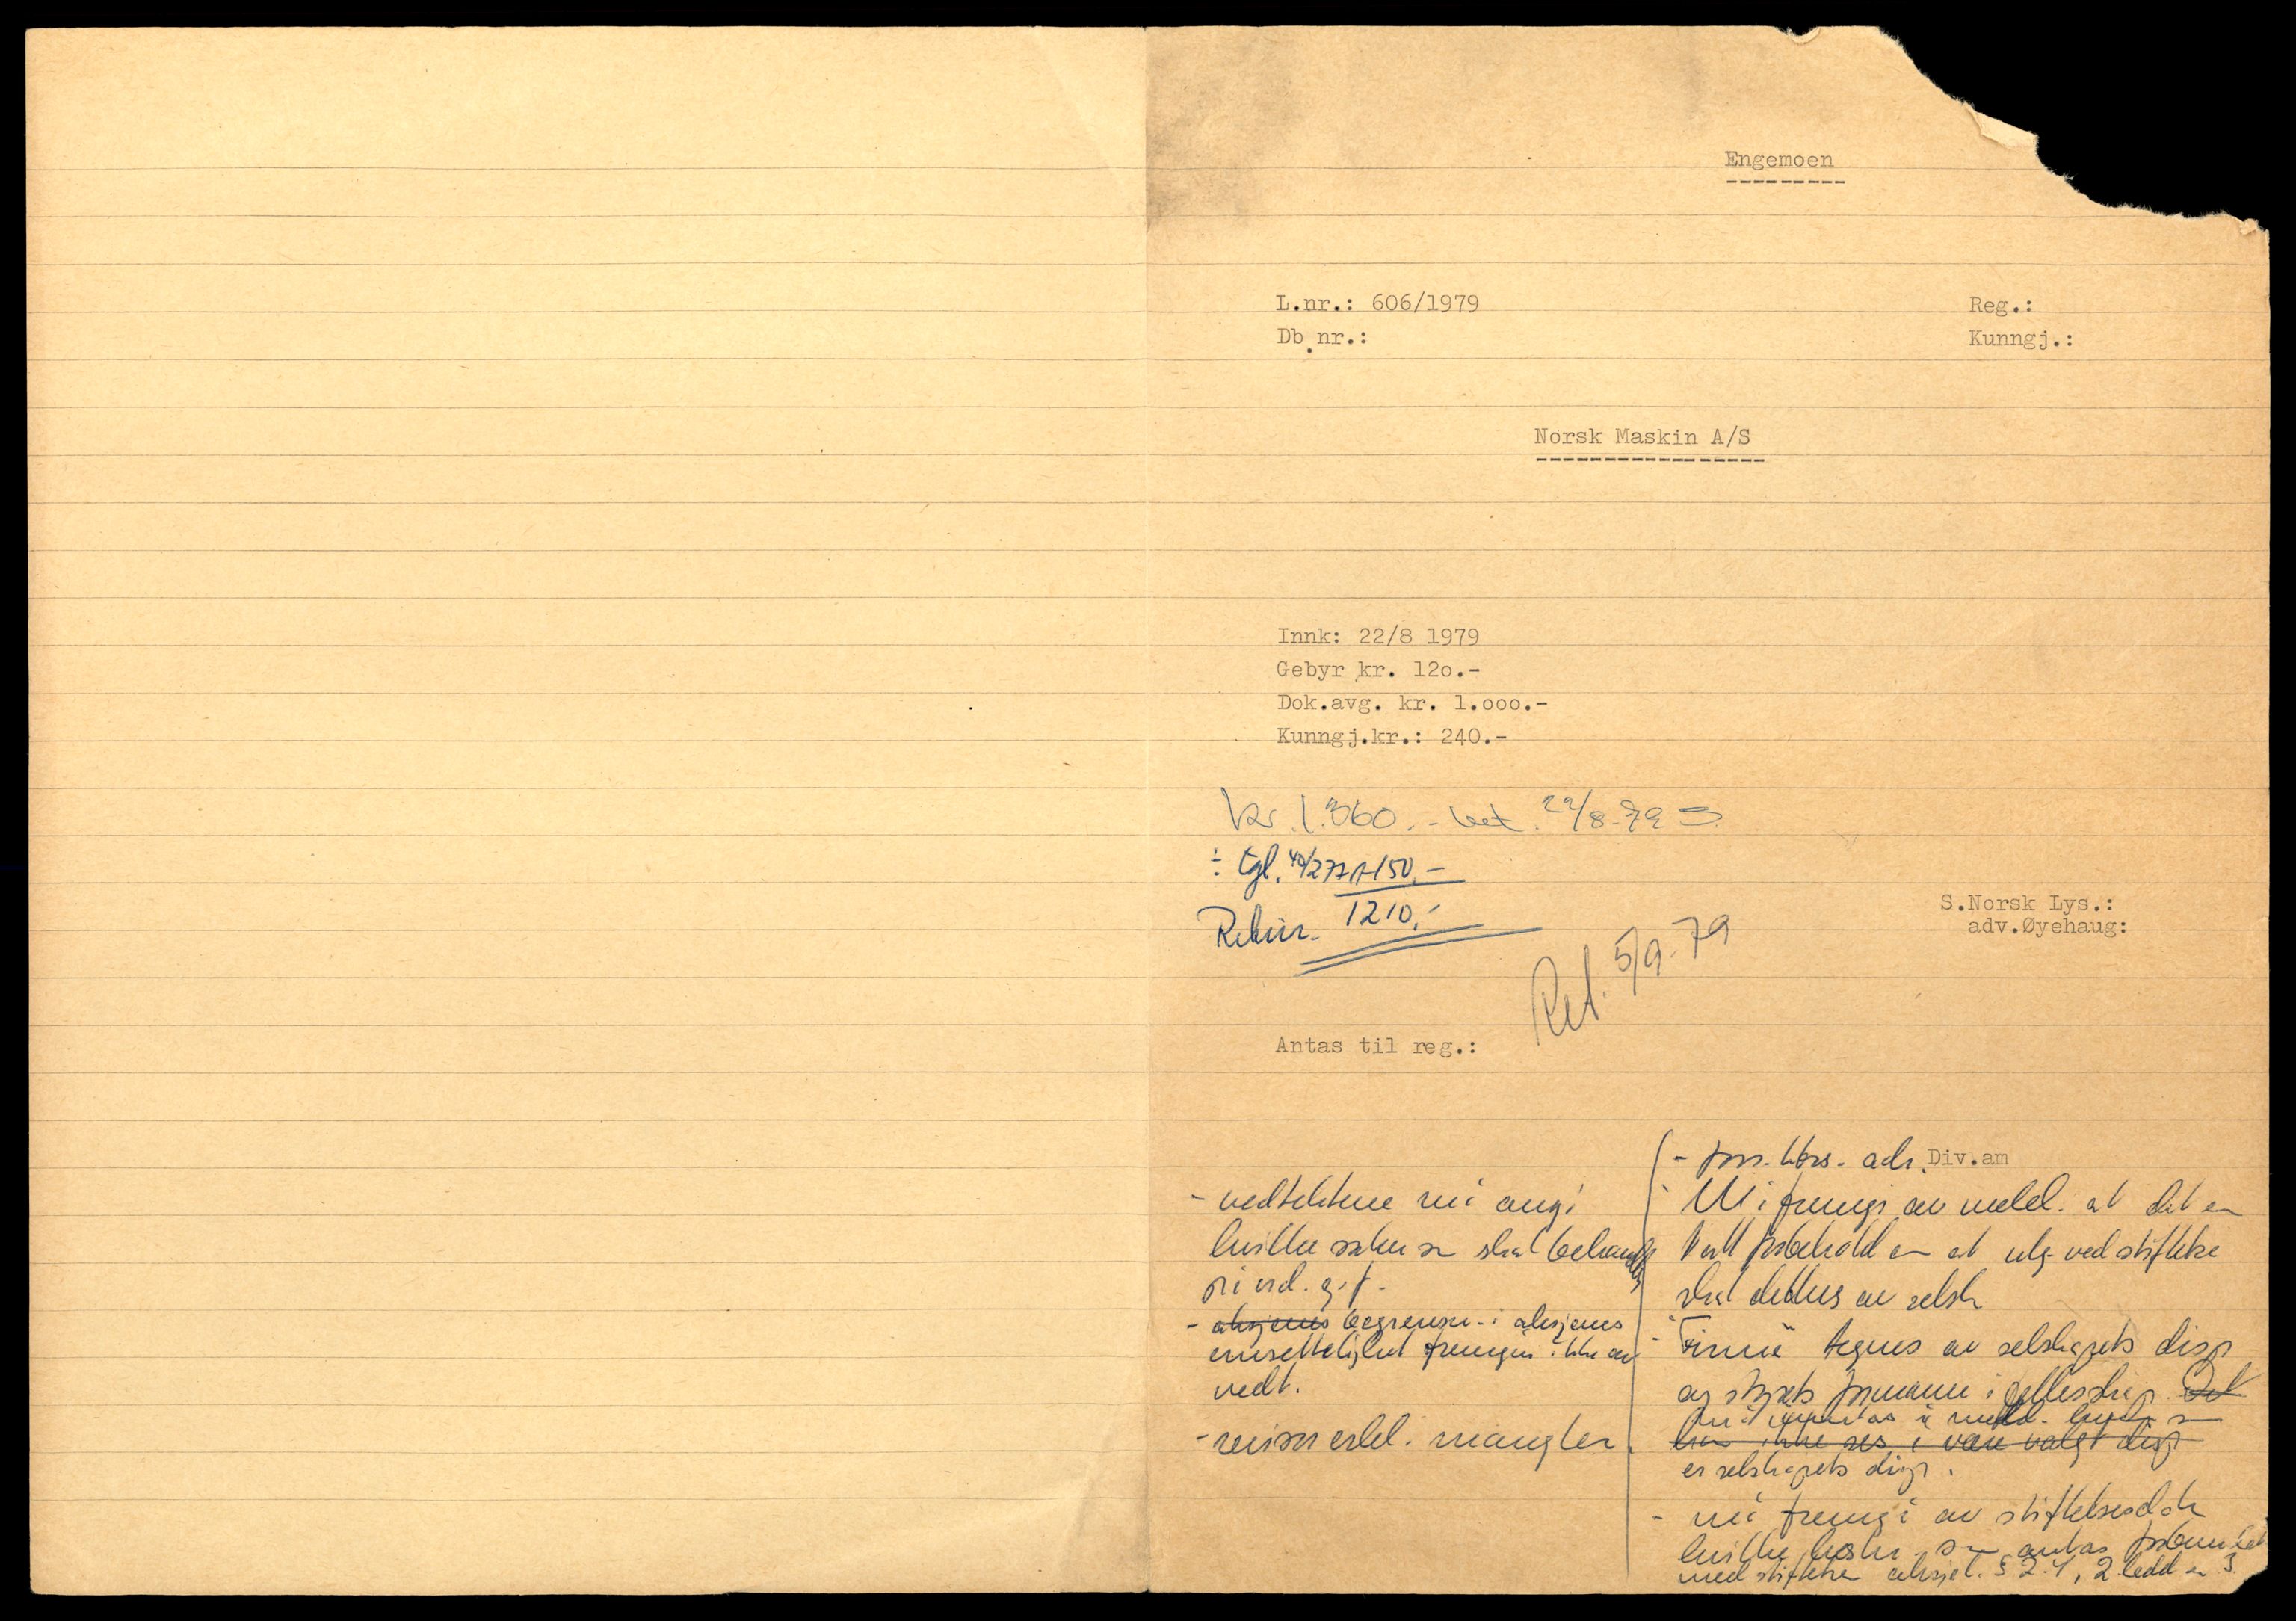 Engemoen
L.nr.: 606/1979
Reg.:
Db.nr.:
Kunngj.:
Norsk Maskin A/S
Innk: 22/8 1979
Gebyr kr. 12o.-
Dok.avg. kr. 1.ooo.-
Kunngj.kr.: 240.-
Kr. 1.360.- bet. 22/8-79
÷ tgl. 150.-
1210.-
S.Norsk Lys.:
adv.Øyehaug:
Ret. 5/9-79
Antas til reg.:
Div.am
- vedtektene må angi
hvilke saker som skal behandles
på ord. g.f.
- aksjenes begrensn. i aksjenes
omsettelighet fremgår ikke av
vedt.
- revisor erkl. mangler.
- adr.
Må fremgå av meld. at det er
tatt forbehold om at utg. ved stiftelse
skal dekkes av selsk
- "Firma" tegnes av selskapets disp
og styrets formann i fellesskap. Det
kan ikke ses å være valgt disp
er selskapets disp.
- må fremgå av stiftelsesdok
hvilke som antas forbundet
med stiftelsen aksjel. § 2.4, 2. ledd nr 3.